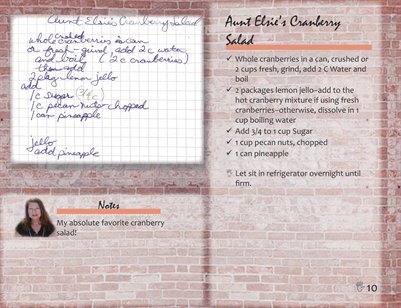 Aunt Elsie's Cranberry Salad
crushed
whole cranberries in can
or fresh - grind, add 2 c water
and boil (2 c cranberries)
then add
2 pkg lemon jello
add
1 c sugar (3/4 c)
1 c pecan nuts chopped
1 can pineapple
jello
add pineapple
Notes
My absolute favorite cranberry
salad!
Aunt Elsie's Cranberry
Salad
✓ Whole cranberries in a can, crushed or
2 cups fresh, grind, add 2 C Water and
boil
✓ 2 packages lemon jello–add to the
hot cranberry mixture if using fresh
cranberries–otherwise, dissolve in 1
cup boiling water
✓ Add 3/4 to 1 cup Sugar
✓ 1 cup pecan nuts, chopped
✓ 1 can pineapple
Let sit in refrigerator overnight until
firm.
10